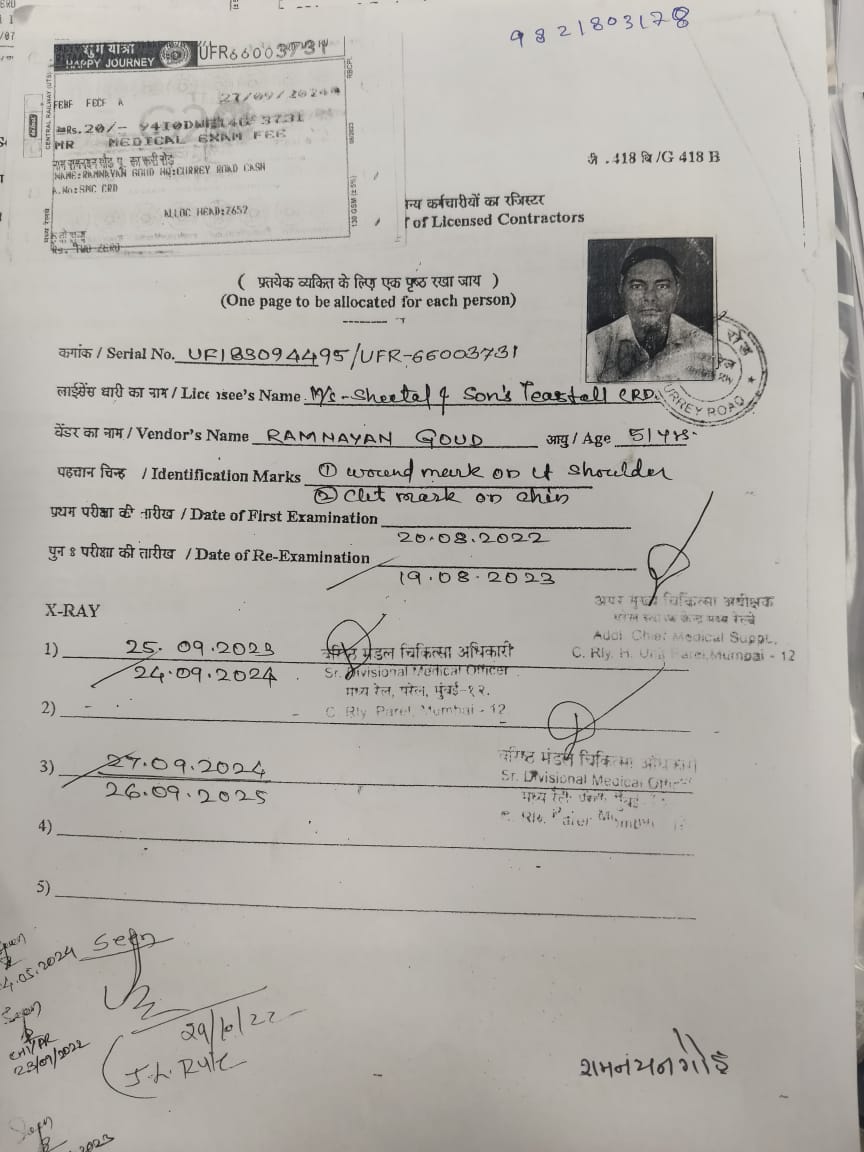 9821803178
शुभ यात्रा
HAPPY JOURNEY
UFR66003731
CENTRAL RAILWAY (UTS)
RBCPL
FEBF FECF A 27/09/2024
Rs.20/-
MR MEDICAL EXAM FEE
NAME:RAMNAYAN GOUD HQ:CURREY ROAD CASH
A.No:SMC CRD
ALLOC HEAD:7652
Rs. TWO ZERO
130 GSM (± 5%)
जी .418 बि /G 418 B
न्य कर्मचारीयों का रजिस्टर
of Licensed Contractors
( प्रत्येक व्यकित के लिए एक पृष्ठ रखा जाय )
(One page to be allocated for each person)
कगांक / Serial No. UF183094495/UFR-66003731
लाईसेंस धारी का नाम / Licensee's Name M/s - Sheetal & Son's Teastall CRD.
वेंडर का नाम / Vendor's Name RAMNAYAN GOUD आयु / Age 51 yrs.
पहचान चिन्ह / Identification Marks ① wound mark on lt shoulder
② Cut mark on chin
प्रथम परीक्षा की तारीख / Date of First Examination
20.08.2022
पुन ः परीक्षा की तारीख / Date of Re-Examination
19.08.2023
CURREY ROAD
अपर मुख्य चिकित्सा अधीक्षक
Addl. Chief Medical Supdt.
C. Rly. H. Unit Parel, Mumbai - 12
X-RAY
1) 25.09.2023
24.09.2024
वरिष्ठ मंडल चिकित्सा अधिकारी
Sr. Divisional Medical Officer
मध्य रेल, परेल, मुंबई-१२.
C. Rly Parel, Mumbai - 12
2)
3) 27.09.2024
26.09.2025
वरिष्ठ मंडल चिकित्सा
Sr. Divisional Medical Officer
4)
5)
Seen
4.05.2024
Seen
Seen
CHI/PR
23/09/2022
29/10/22
Seen
2023
રામનયનગોડ